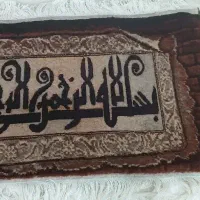 بسم الله الرحمن الر